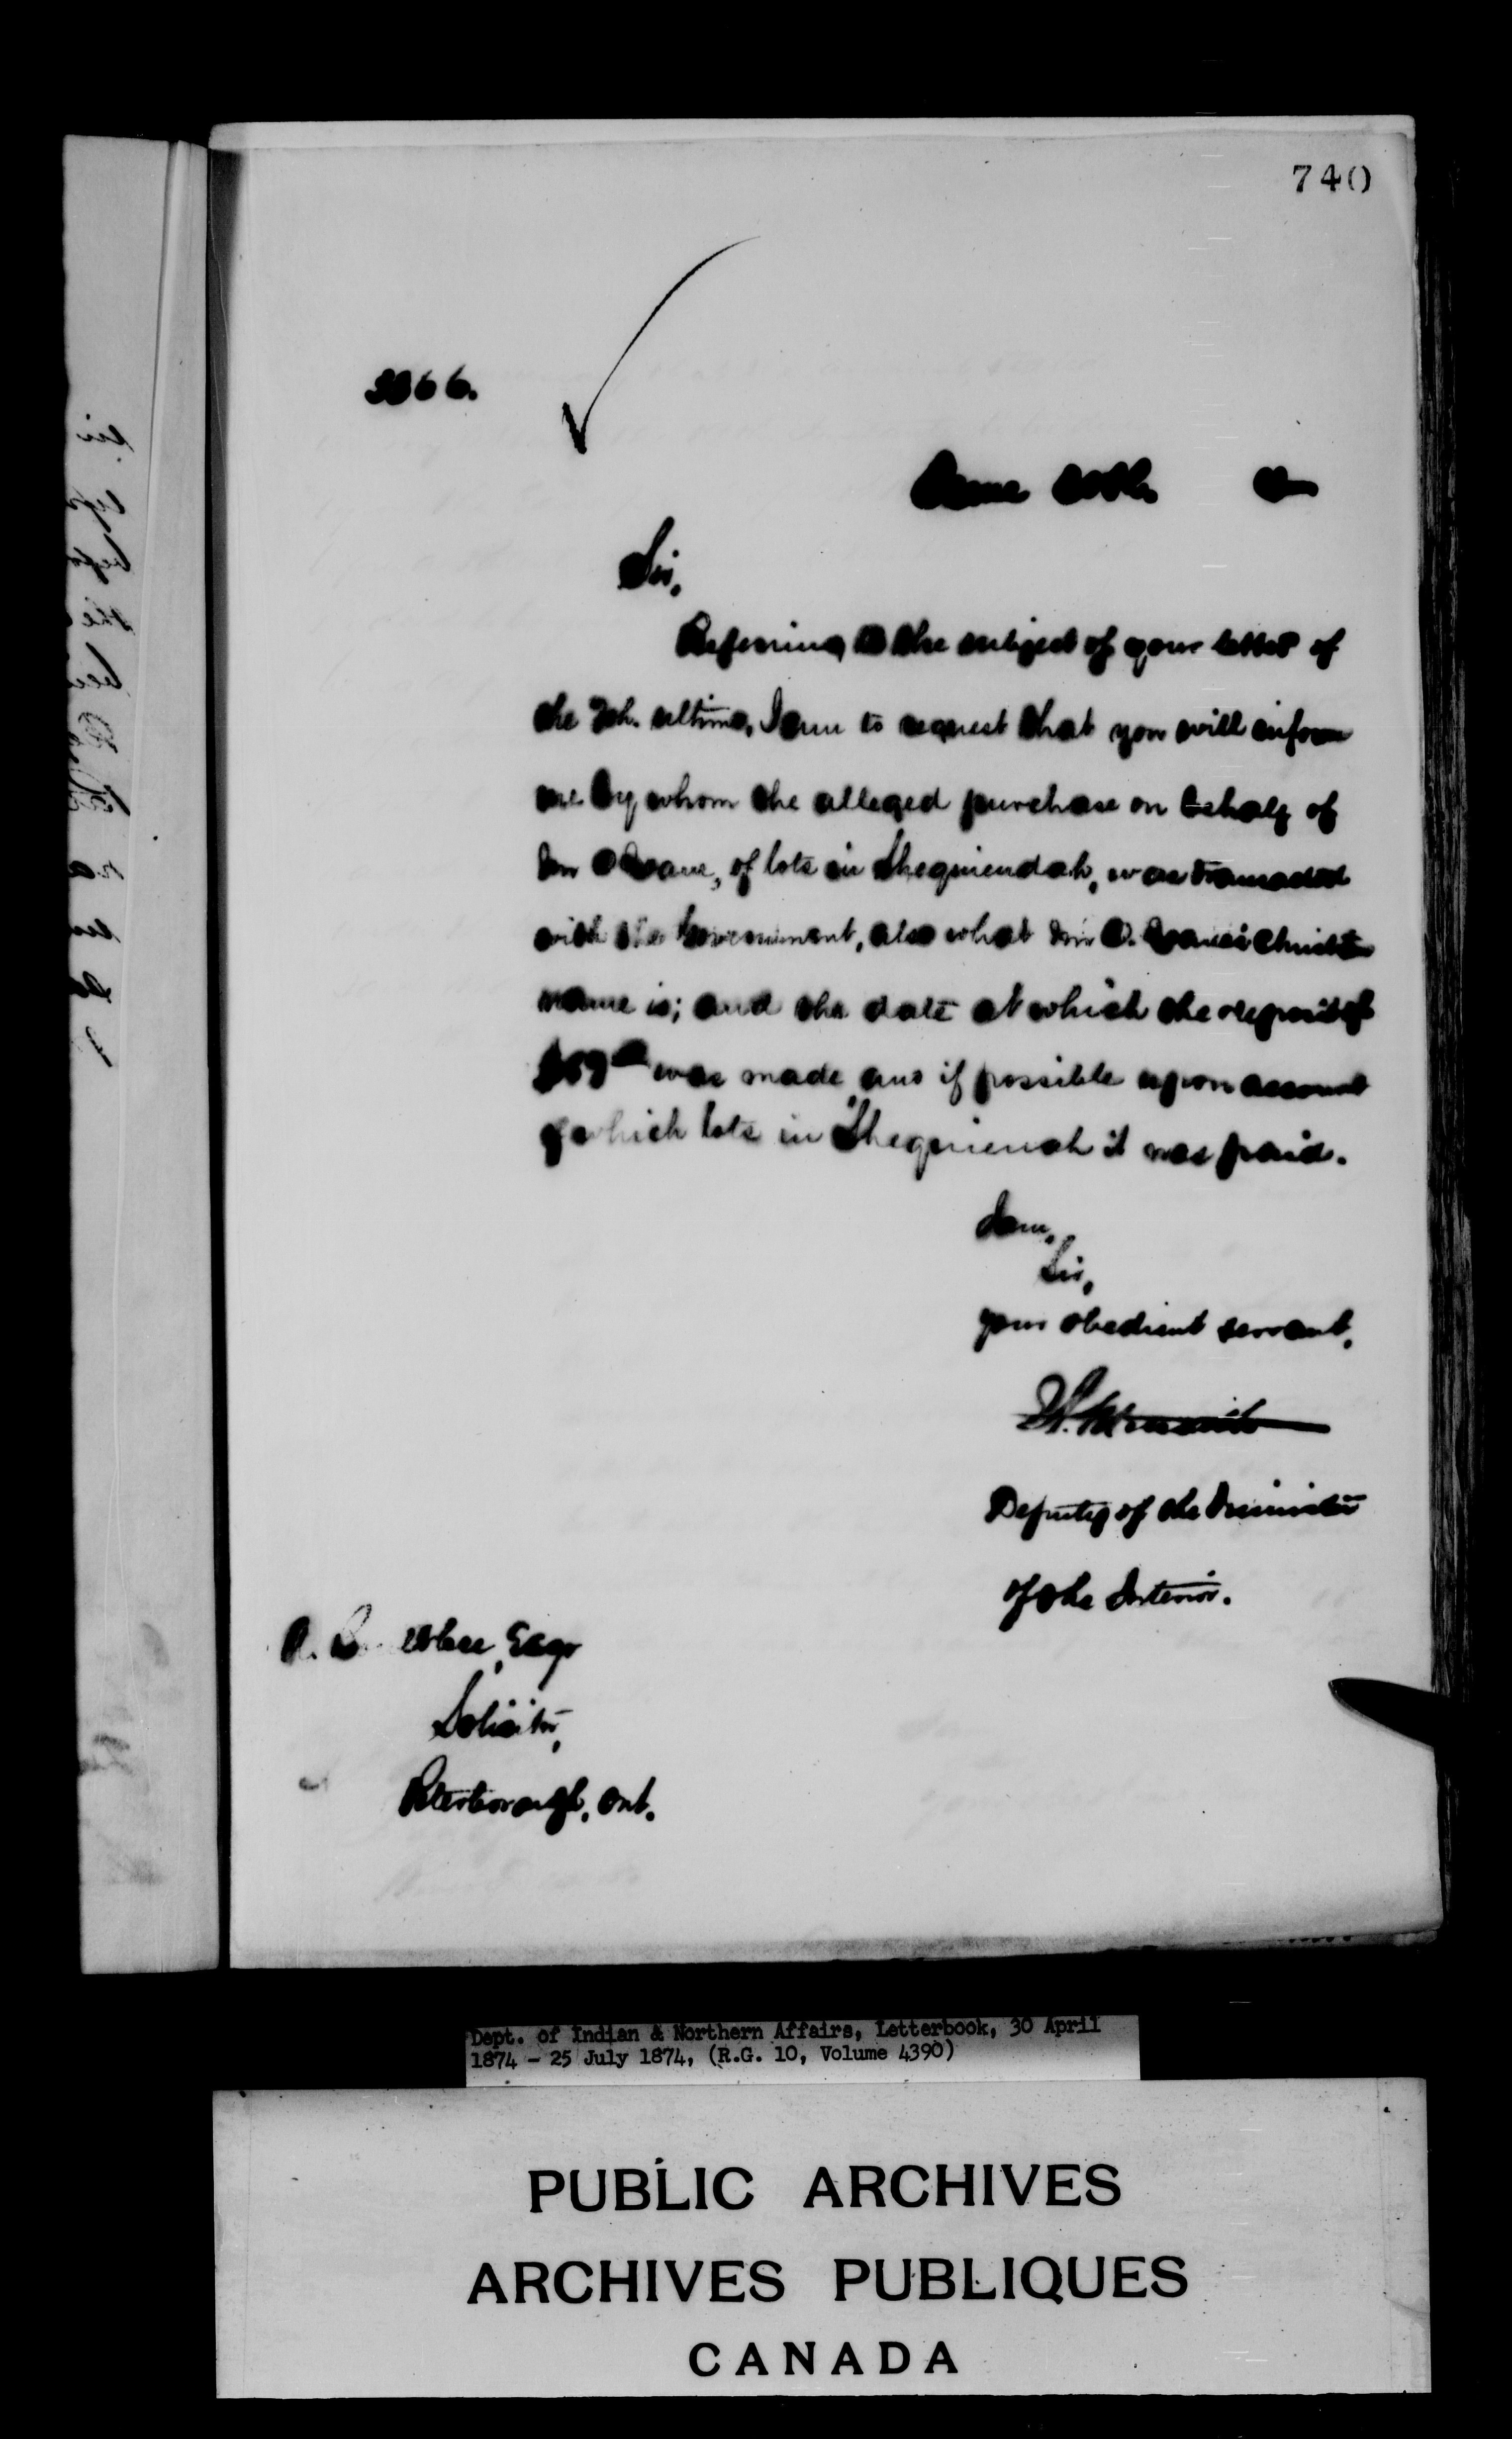 740
Sir,
Referring to the subject of your letter of
the ultimo, I am to request that you will inform
me by whom the alleged purchase on behalf of
of lots in Sheguiendah, was transacted
with the Government, also what Christian
name is; and the date at which the deposit of
was made and if possible upon account
of which lots in Sheguienah it was paid.
I am,
Sir,
your obedient servant,
Deputy of the Minister
of the Interior.
Esqr
Solicitor,
Peterborough, Ont.
Dept. of Indian & Northern Affairs, Letterbook, 30 April
1874 - 25 July 1874, (R.G. 10, Volume 4390)
PUBLIC ARCHIVES
ARCHIVES PUBLIQUES
CANADA